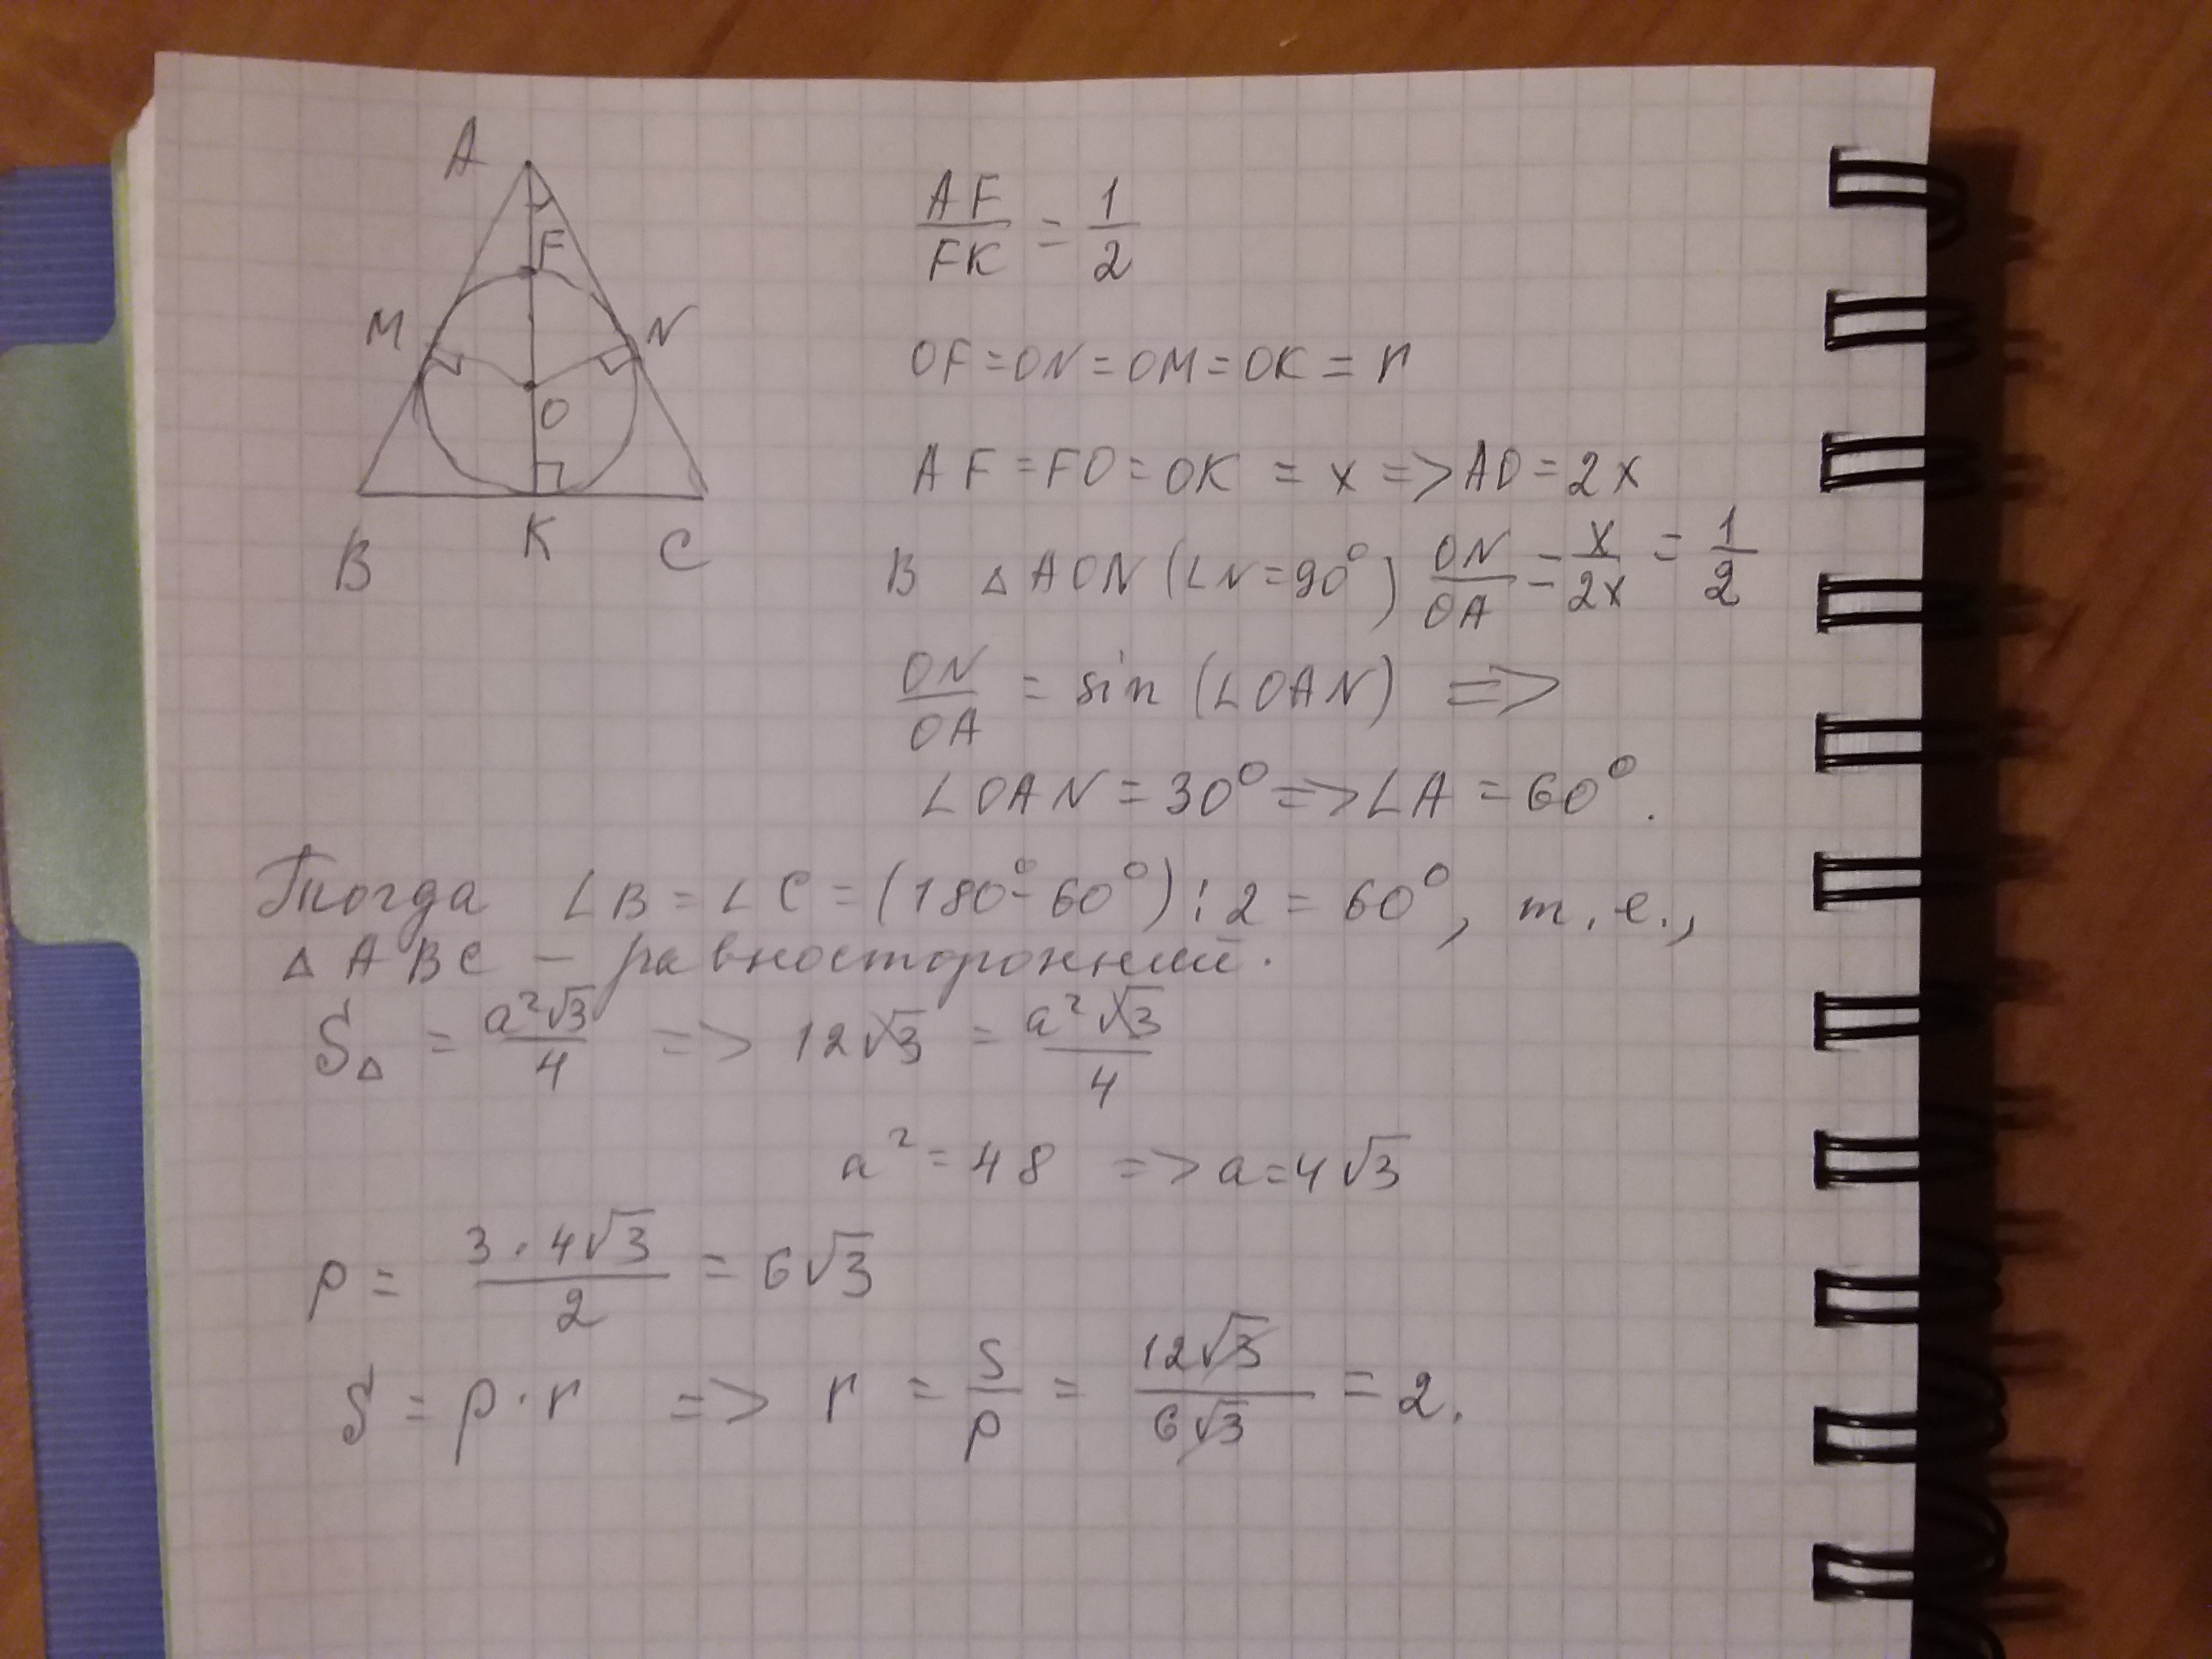 A
F
M
N
O
B
K
C
AF/FK = 1/2
OF=ON=OM=OK=r
AF=FO=OK=x=>AO=2x
В △AON (∠N=90°) ON/OA = x/2x = 1/2
ON/OA = sin (∠OAN) =>
∠OAN=30°=>∠A=60°.
Тогда ∠B=∠C=(180°-60°):2=60°, т.е.,
△ABC – равносторонний.
S△ = a²√3/4 => 12√3 = a²√3/4
a²=48 => a=4√3
p = 3·4√3/2 = 6√3
S = p·r => r = S/p = 12√3/6√3 = 2.